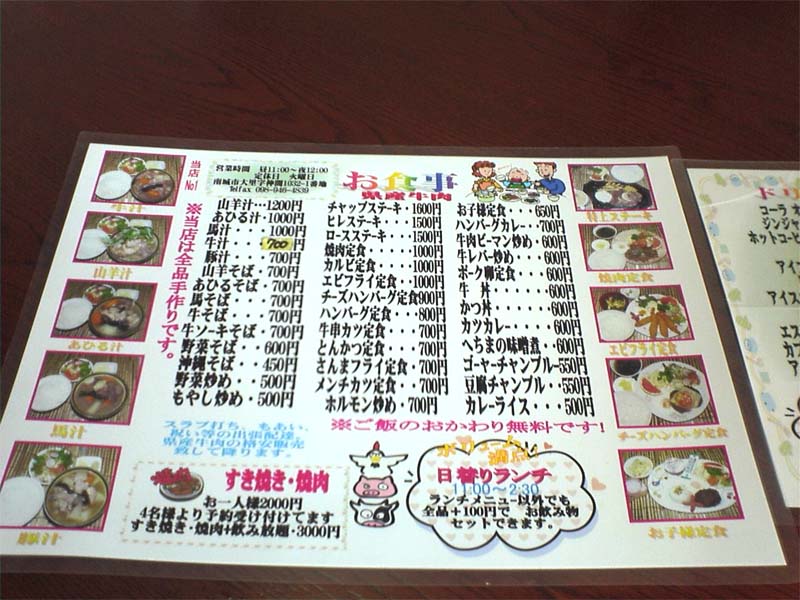 当店No1
営業時間 昼11:00～夜12:00
定休日 火曜日
南城市大里字仲間1032-1番地
Telfax 098-946-4839
お食事
県産牛肉
※当店は全品手作りです。
山羊汁・・・1200円
あひる汁・・・1000円
馬汁・・・・・1000円
牛汁・・・・・700円
豚汁・・・・・700円
山羊そば・・・700円
あひるそば・・・700円
馬そば・・・・700円
牛そば・・・・700円
牛ソーキそば・・700円
野菜そば・・・600円
沖縄そば・・・450円
野菜炒め・・・500円
もやし炒め・・・500円
チャップステーキ・・1600円
ヒレステーキ・・・1500円
ロースステーキ・・・1500円
焼肉定食・・・・1000円
カルビ定食・・・1000円
エビフライ定食・・・1000円
チーズハンバーグ定食900円
ハンバーグ定食・・・800円
牛串カツ定食・・・700円
とんかつ定食・・・700円
さんまフライ定食・・700円
メンチカツ定食・・・700円
ホルモン炒め・・・700円
お子様定食・・・650円
ハンバーグカレー・・700円
牛肉ピーマン炒め・・600円
牛レバー炒め・・・600円
ポーク卵定食・・・600円
牛丼・・・・・600円
かつ丼・・・・・600円
カツカレー・・・・600円
へちまの味噌煮・・600円
ゴーヤーチャンプルー550円
豆腐チャンプルー・・550円
カレーライス・・・500円
※ご飯のおかわり無料です!
スラブ打ち、もあい、
祝い等の出張配達、
県産牛肉の格安販売
致して降ります。
すき焼き・焼肉
お一人様2000円
4名様より予約受け付けてます
すき焼き・焼肉+飲み放題・3000円
ボリューム
満点!
日替りランチ
11:00～2:30
ランチメニュー以外でも
全品+100円で お飲み物
セットできます。
牛汁
山羊汁
あひる汁
馬汁
豚汁
特上ステーキ
焼肉定食
エビフライ定食
チーズハンバーグ定食
お子様定食
ドリ
コーラ オ
ジンジャ
ホットコーヒー
アイ
アイス
エス
カフ
ア